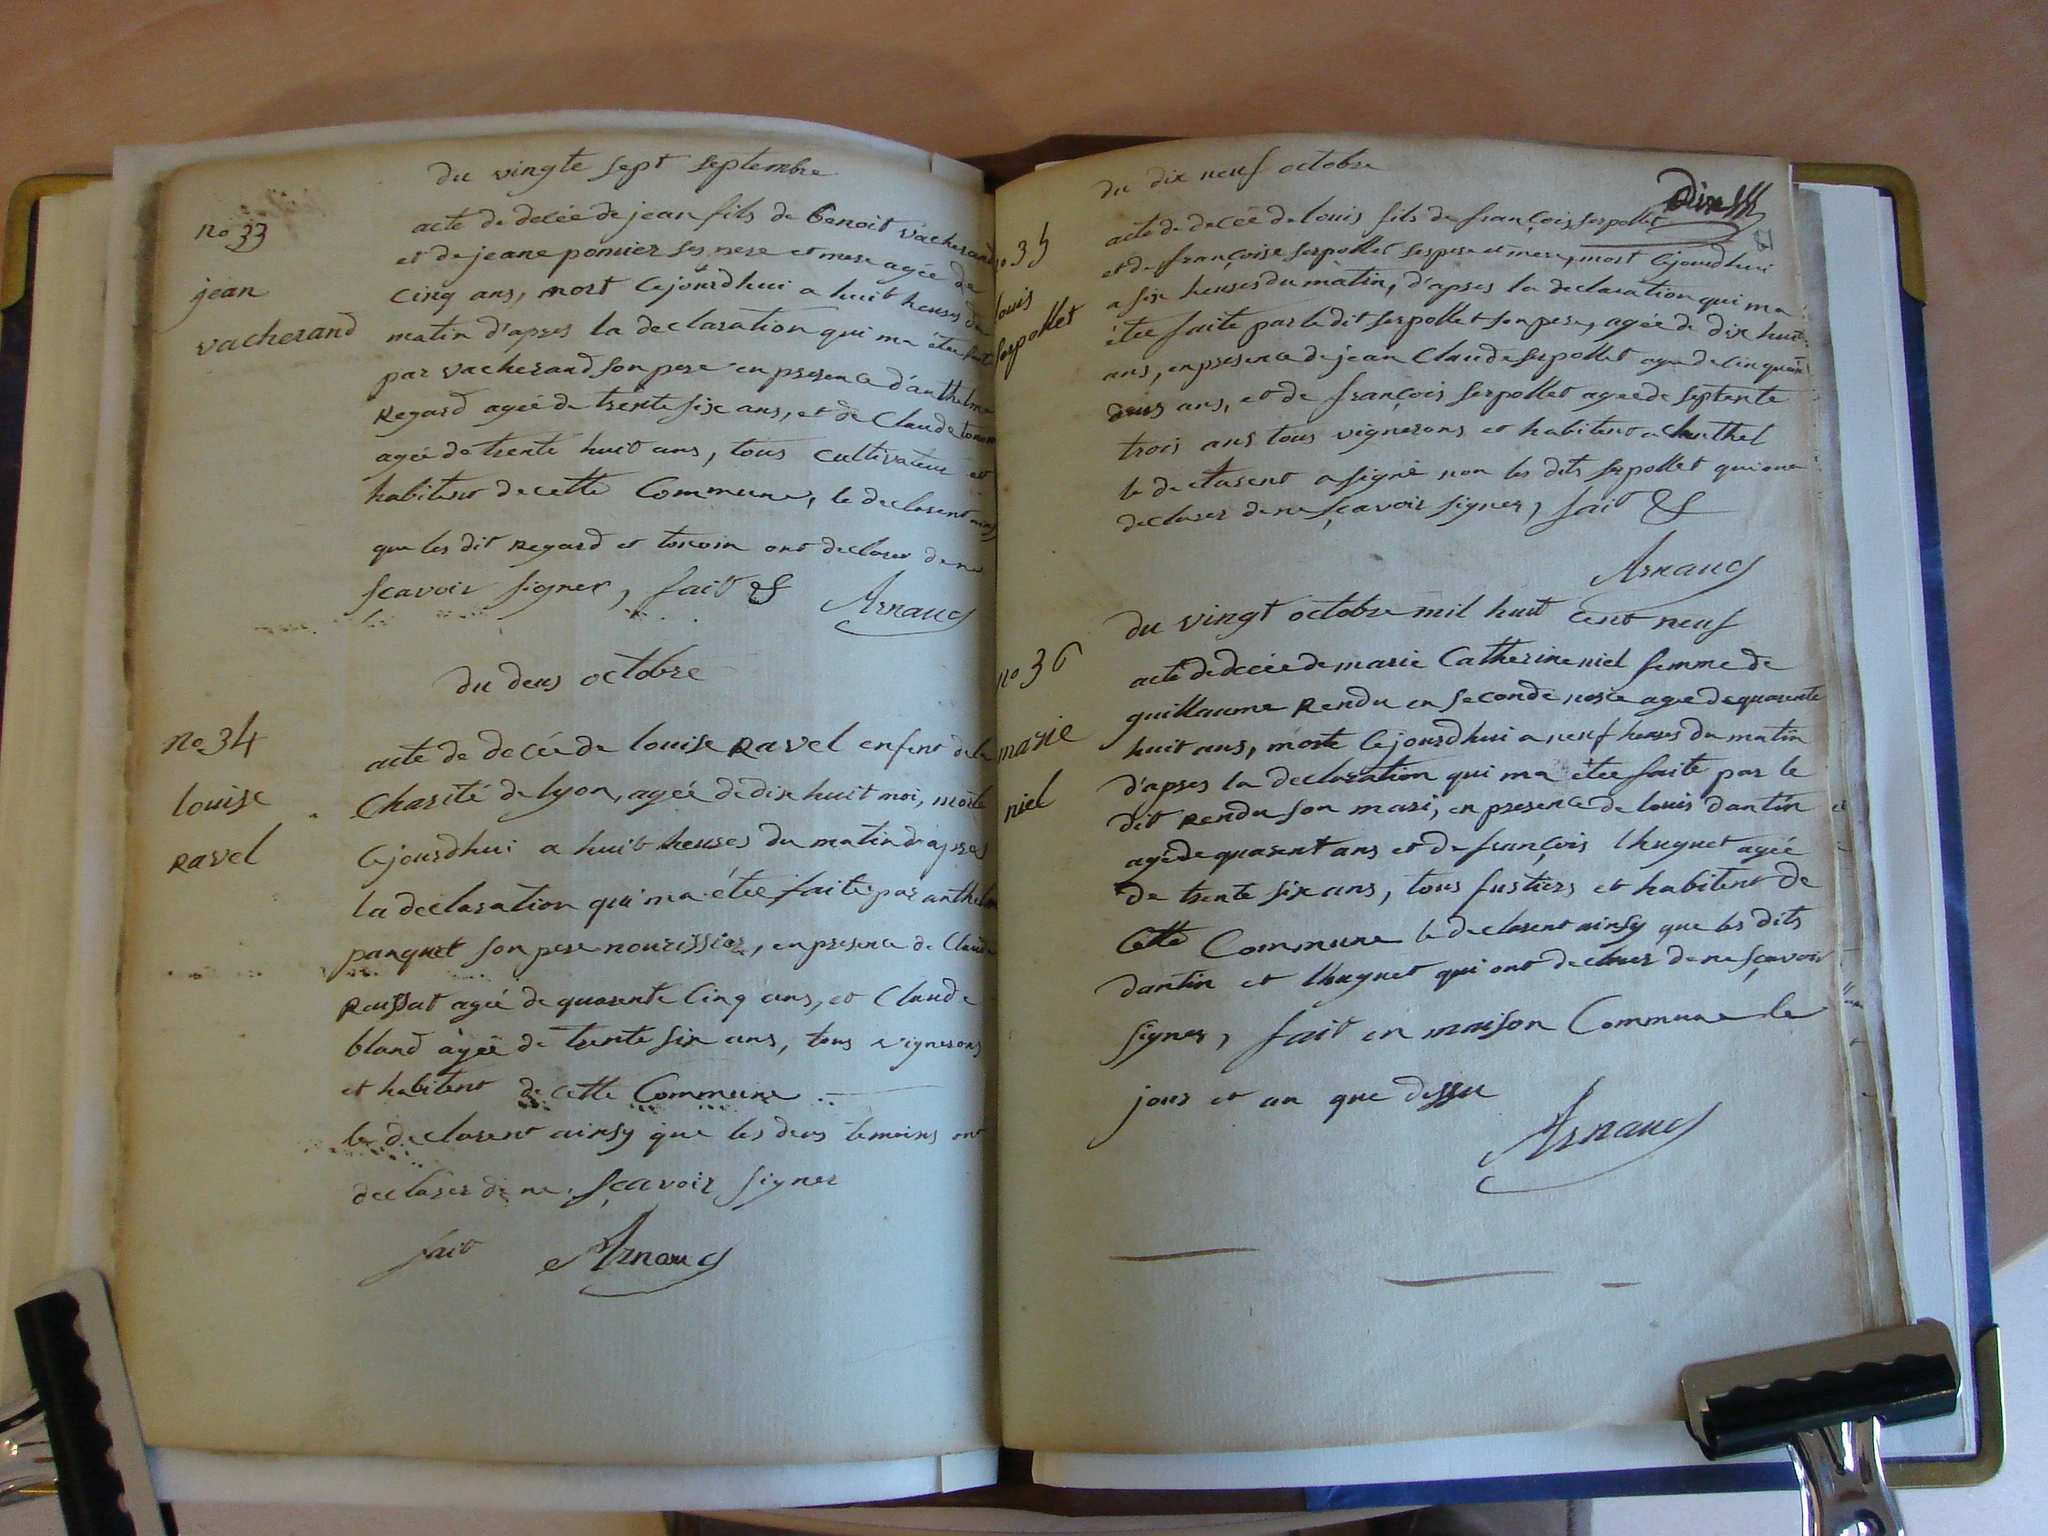 du vingte sept septembre
no 33
jean
vacherand
acte de decée de jean fils de benoit vacherand
et de jeane ponsier ses pere et mere agée de
cinq ans, mort cejourdhui a huit heures du
matin d'apres la declaration qui ma étée fait
par vacherand son pere en presence d'anthelme
Regard agée de trente six ans, et de Claude
agée de trente huit ans, tous cultivateur et
habitent de cette Commune, le declarent ainsy
que les dit Regard et ont declarer de ne
scavoir signer, fait &
Arnaud
du deus octobre
no 34
louise
ravel
acte de decée de louise Ravel enfent de la
Charité de lyon, agée de dix huit moi, morte
cejourdhui a huit heures du matin d'apres
la declaration qui ma étée faite par anthelme
panquet son pere nourissier, en presence de Claude
Roussat agée de quarente Cinq ans, et Claude
bland agée de trente six ans, tous vignerons
et habitent de cette Commune
le declarent ainsy que les deus temoins ont
declarer de ne sçavoir signer
fait Arnaud
du dix neuf octobre
no 35
louis
serpollet
acte de decée de louis fils de françois serpollet
et de françoise serpollet ses pere et mere, mort cejourdhui
a six heures du matin, d'apres la declaration qui ma
étée faite par le dit serpollet son pere, agée de dix huit
ans, en presence de jean Claude serpollet agée de cinquante
deus ans, et de françois serpollet agée de septente
trois ans tous vignerons et habitent a
le declarent a signé non les dits serpollet qui ont
declarer de ne sçavoir signer, fait &
Arnaud
du vingt octobre mil huit cent neuf
no 36
marie
niel
acte de decée de marie Catherine niel femme de
guillaume Rendu en seconde nosce agée de quarente
huit ans, morte cejourdhui a neuf heures du matin
d'apres la declaration qui ma étée faite par le
dit Rendu son mari, en presence de louis dantin
agée de quarent ans et de françois thuguet agée
de trente six ans, tous fustiers et habitent de
cette Commune le declarent ainsy que les dits
dantin et thuguet qui ont declarer de ne sçavoir
signer, fait en maison Commune le
jour et an que dessu
Arnaud